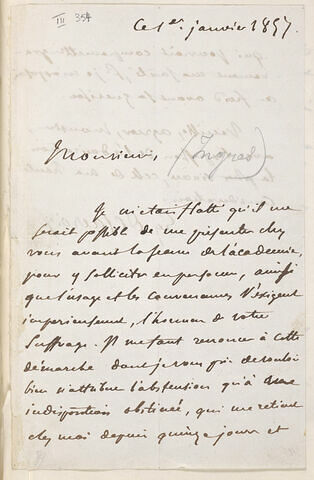 III 354
Ce 1er janvier 1857.
Monsieur, (Ingres)
Je m'étais flatté qu'il me
serait possible de me présenter chez
vous avant la séance de l'académie,
pour y solliciter en personne, ainsi
que l'usage et les convenances l'exigent
impérieusement, l'honneur de votre
suffrage. Il me faut renoncer à cette
démarche dont je vous prie de vouloir
bien n'attribuer l'abstension qu'à une
indisposition obstinée, qui me retient
chez moi depuis quinze jours et